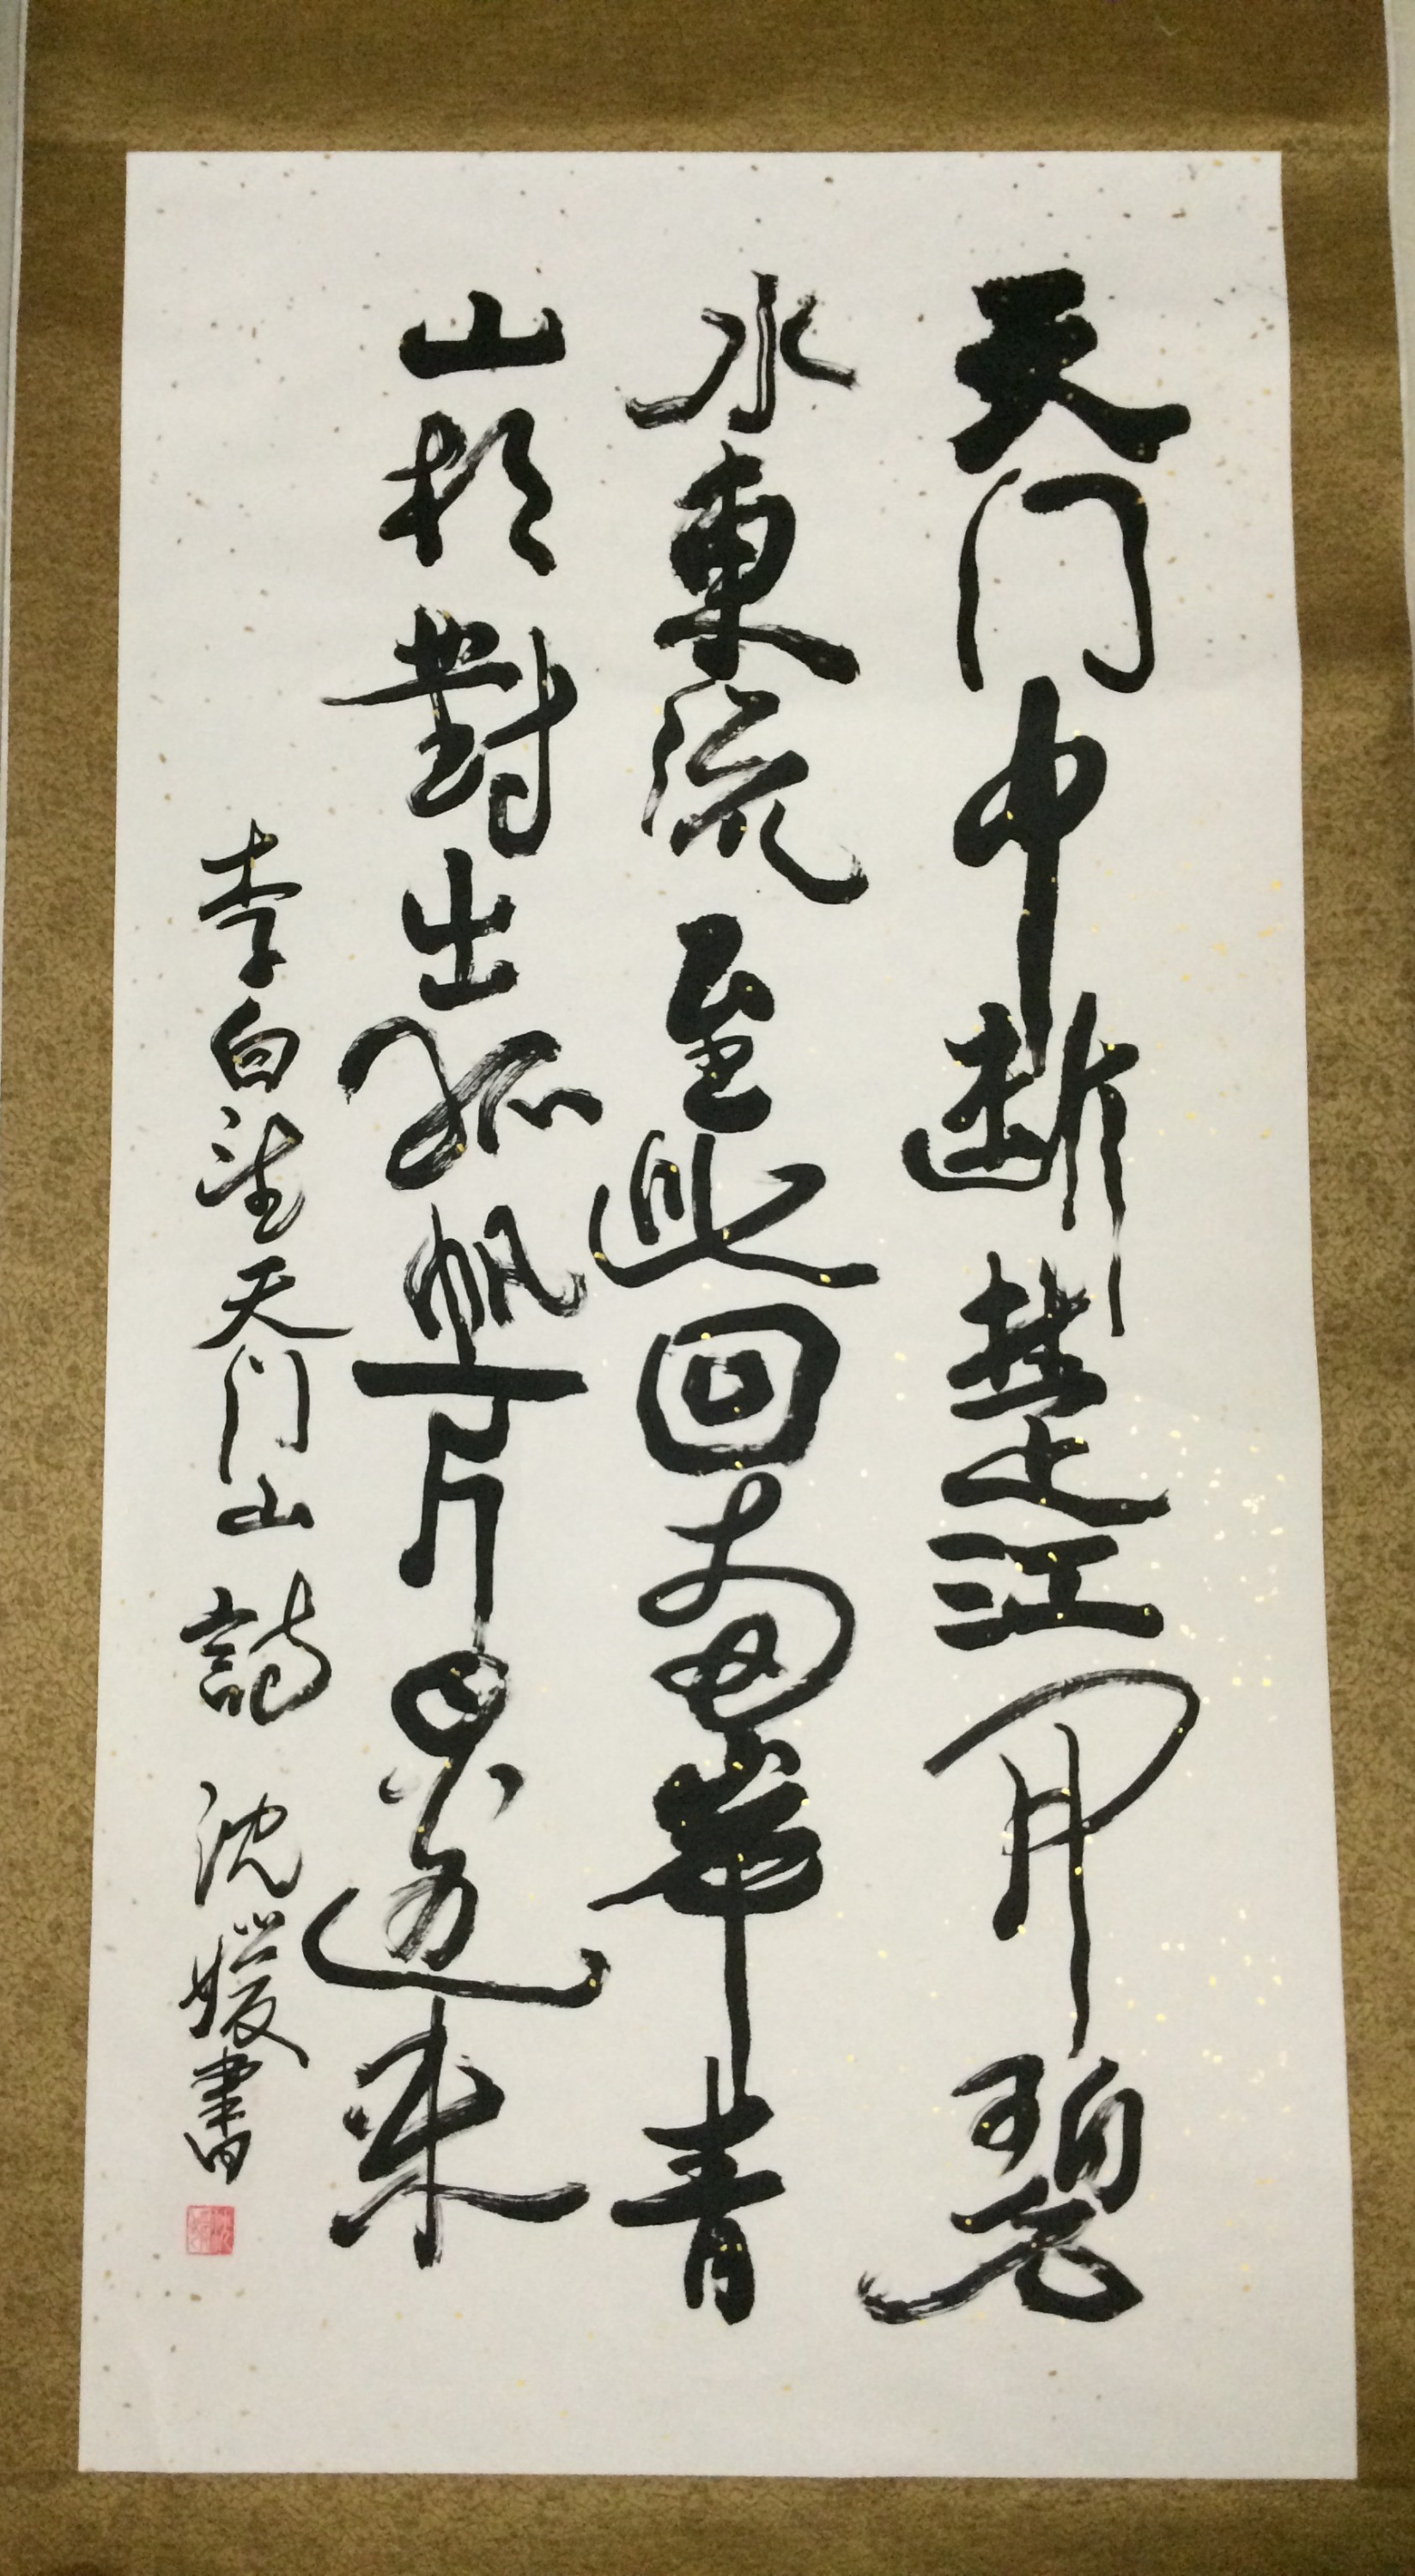 天门中断楚江开碧
水東流至此回两岸青
山相對出孤帆一片日边来
李白望天门山詩 沈媛書